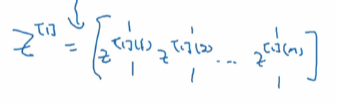 Z^[1] = [z^[1](1) z^[1](2) ... z^[1](m)]